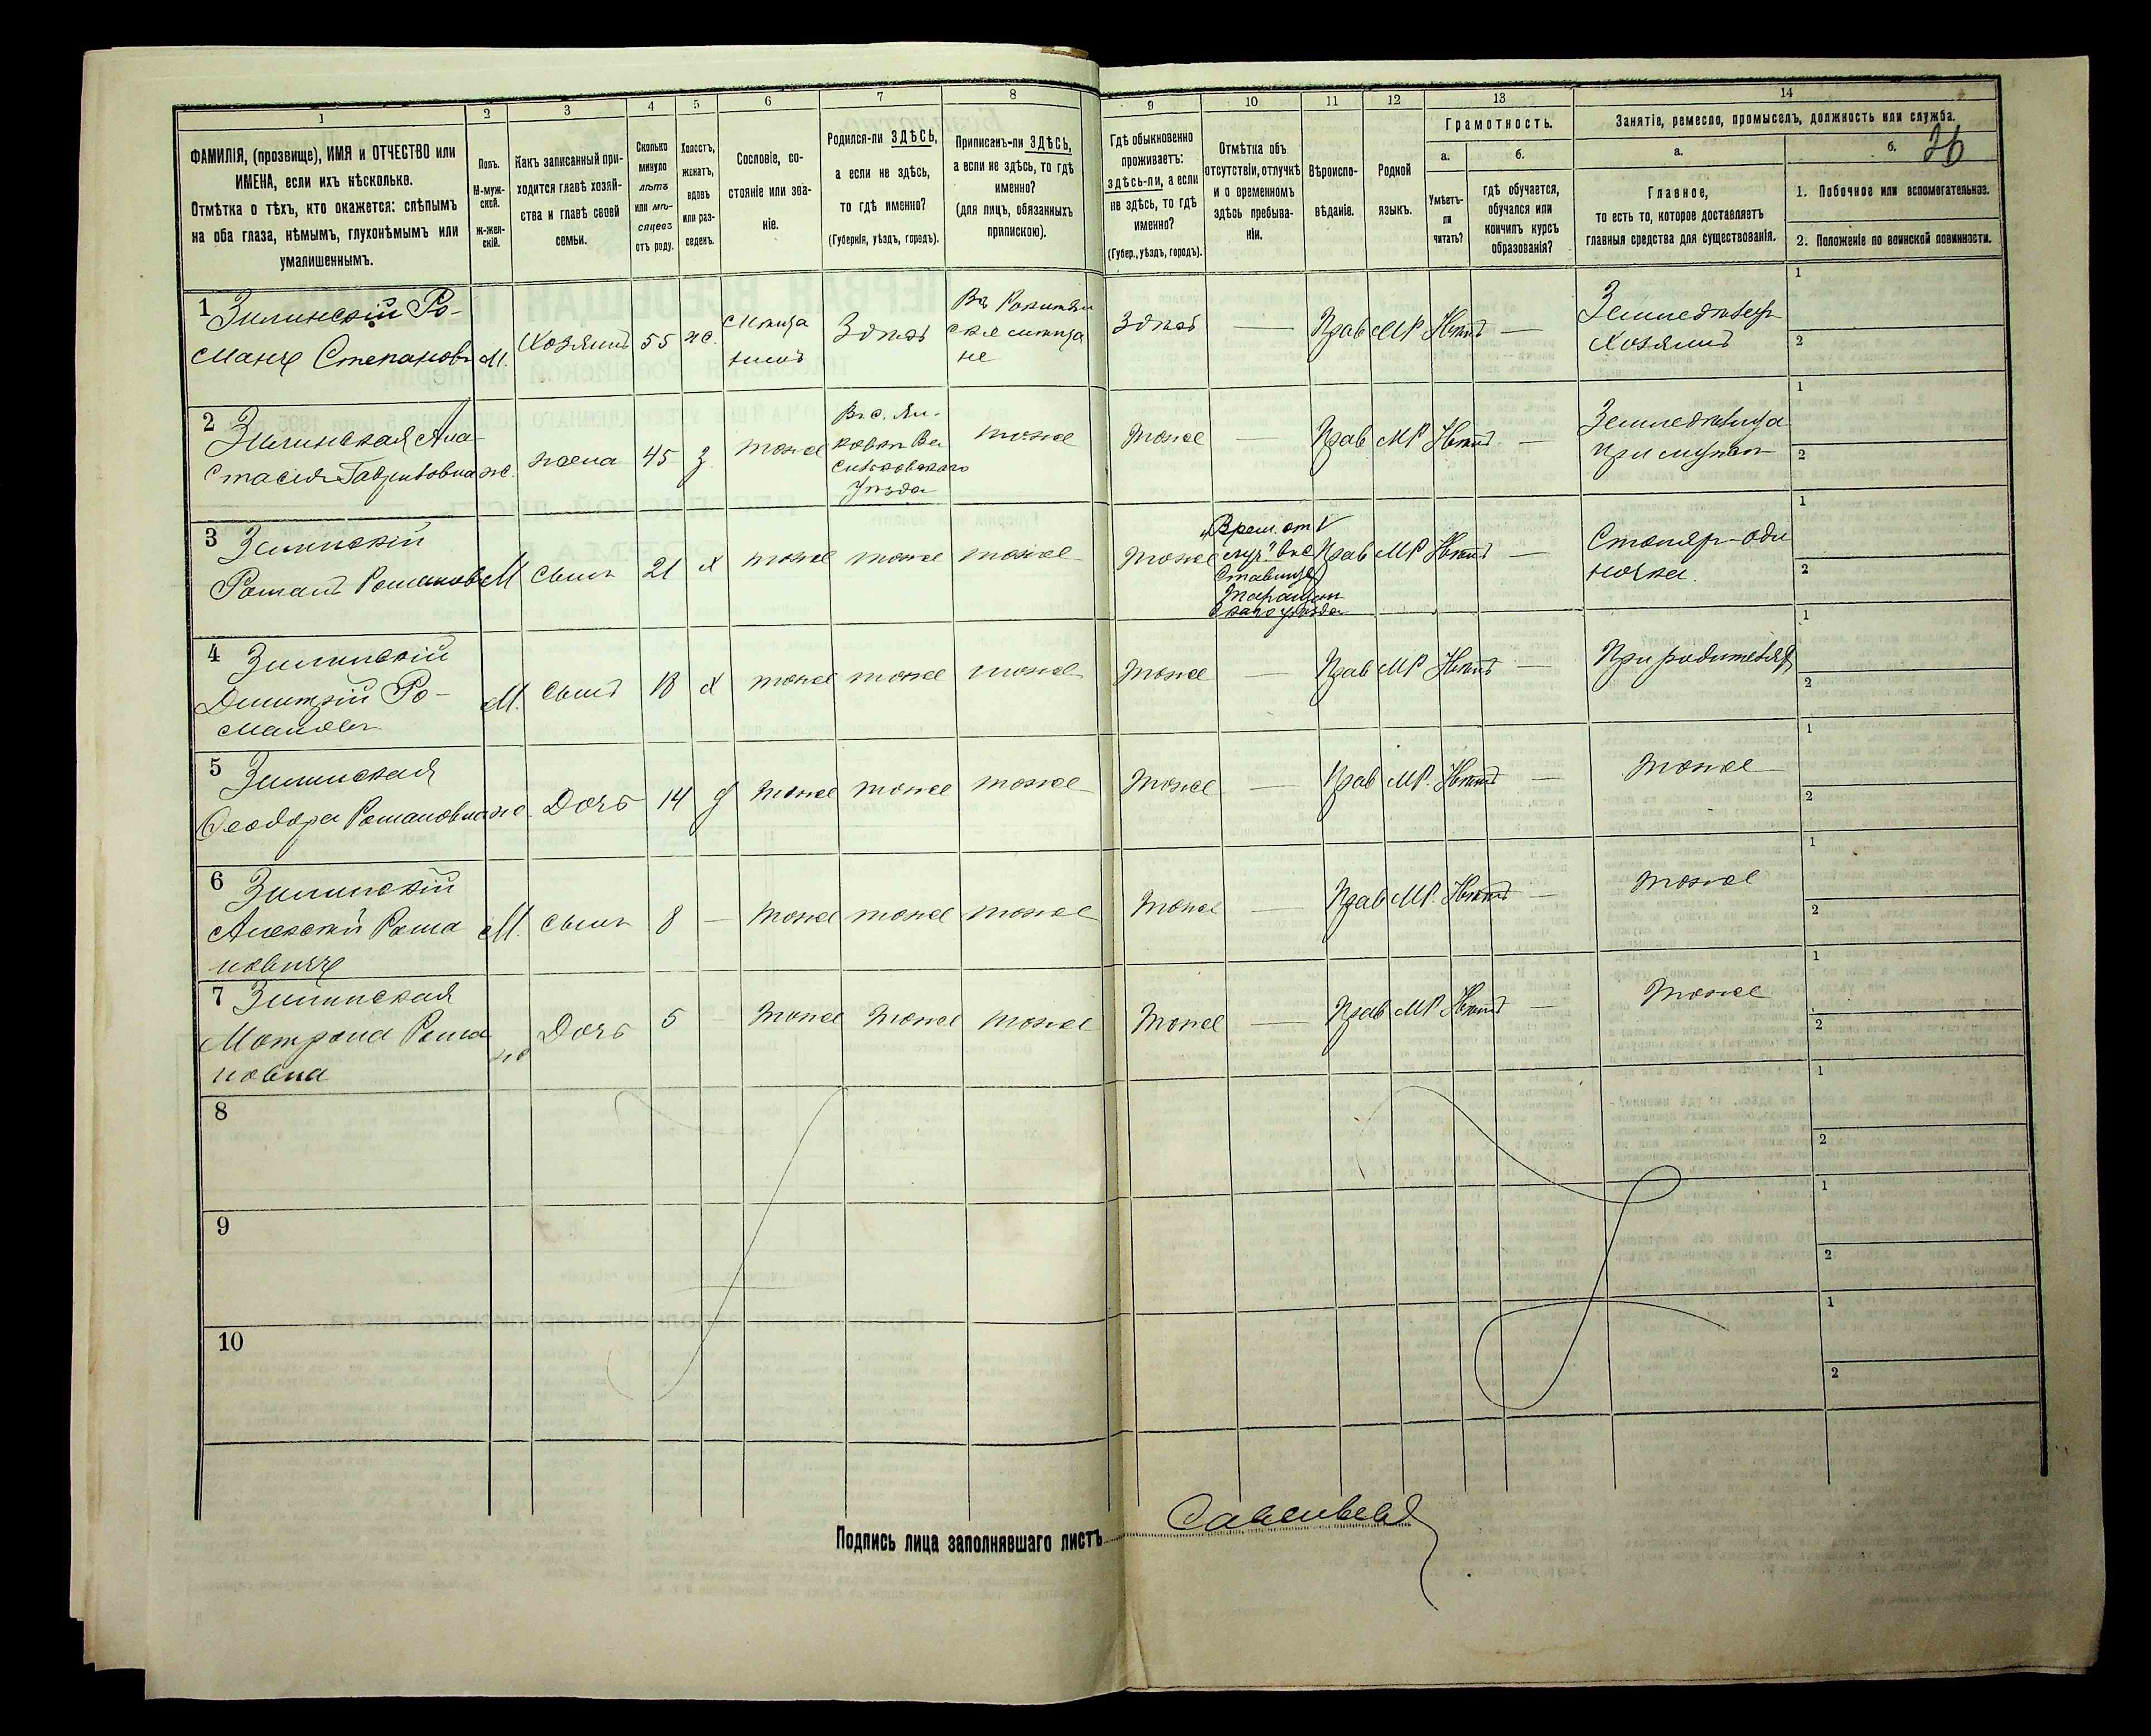 1
2
3
4
5
6
7
8
ФАМИЛІЯ, (прозвище), ИМЯ и ОТЧЕСТВО или
ИМЕНА, если ихъ нѣсколько.
Отмѣтка о тѣхъ, кто окажется: слѣпымъ
на оба глаза, нѣмымъ, глухонѣмымъ или
умалишеннымъ.
Полъ.
М-муж-
ской.
Ж-жен-
скій.
Какъ записанный при-
ходится главѣ хозяй-
ства и главѣ своей
семьи.
Сколько
минуло
лѣтъ
или мѣ-
сяцевъ
отъ роду.
Холостъ,
женатъ,
вдовъ
или раз-
веденъ.
Сословіе, со-
стояніе или зва-
ніе.
Родился-ли ЗДѢСЬ,
а если не здѣсь,
то гдѣ именно?
(Губернія, уѣздъ, городъ).
Приписанъ-ли ЗДѢСЬ,
а если не здѣсь, то гдѣ
именно?
(для лицъ, обязанныхъ
припискою).
9
10
11
12
13
14
Гдѣ обыкновенно
проживаетъ:
здѣсь-ли, а если
не здѣсь, то гдѣ
именно?
(Губер., уѣздъ, городъ).
Отмѣтка объ
отсутствіи, отлучкѣ
и о временномъ
здѣсь пребыва-
ніи.
Вѣроиспо-
вѣданіе.
Родной
языкъ.
Грамотность.
а.
Умѣетъ-
ли
читать?
б.
гдѣ обучается,
обучался или
кончилъ курсъ
образованія?
Занятіе, ремесло, промыселъ, должность или служба.
26
а.
Главное,
то есть то, которое доставляетъ
главныя средства для существованія.
б.
1. Побочное или вспомогательное.
2. Положеніе по воинской повинности.
1 Зилинскій Ро-
манъ Степановъ М. Хозяинъ 55 ж.
Здѣсь
Здѣсь — Прав МР Нѣтъ —
Хозяинъ
1
2
2 Зилинская Ана-
стасія Гавриловна ж. жена 45 з. тоже
уѣзда
тоже тоже — Прав МР Нѣтъ —
при мужѣ
1
2
3 Зилинскій
Романъ Романовъ М сынъ 21 х тоже тоже тоже
тоже
Прав МР Нѣтъ —
Столяръ-оди
ночка.
1
2
4 Зилинскій
Дмитрій Ро-
мановъ М. сынъ 18 х тоже тоже тоже
тоже — Прав МР Нѣтъ —
При родителяхъ
1
2
5 Зилинская
Ѳеодора Романовна ж. Дочь 14 д тоже тоже тоже
тоже — Прав МР. Нѣтъ — тоже
1
2
6 Зилинскій
Алексѣй Рома
новичъ М. сынъ 8 — тоже тоже тоже
тоже — Прав МР. Нѣтъ — тоже
1
2
7 Зилинская
Мотрона Рома
новна ж Дочь 5 — тоже тоже тоже
тоже — Прав МР Нѣтъ — тоже
1
2
8
1
2
9
1
2
10
1
2
Подпись лица заполнявшаго листъ